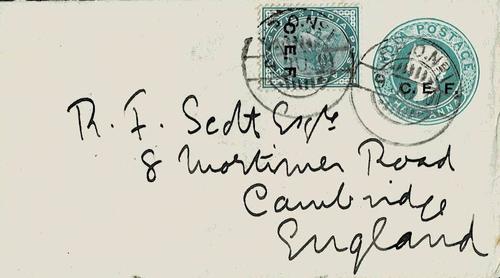 INDIA POSTAGE
C.E.F.
C.E.F.
R. F. Scott Esqre
8 Mortimer Road
Cambridge
England